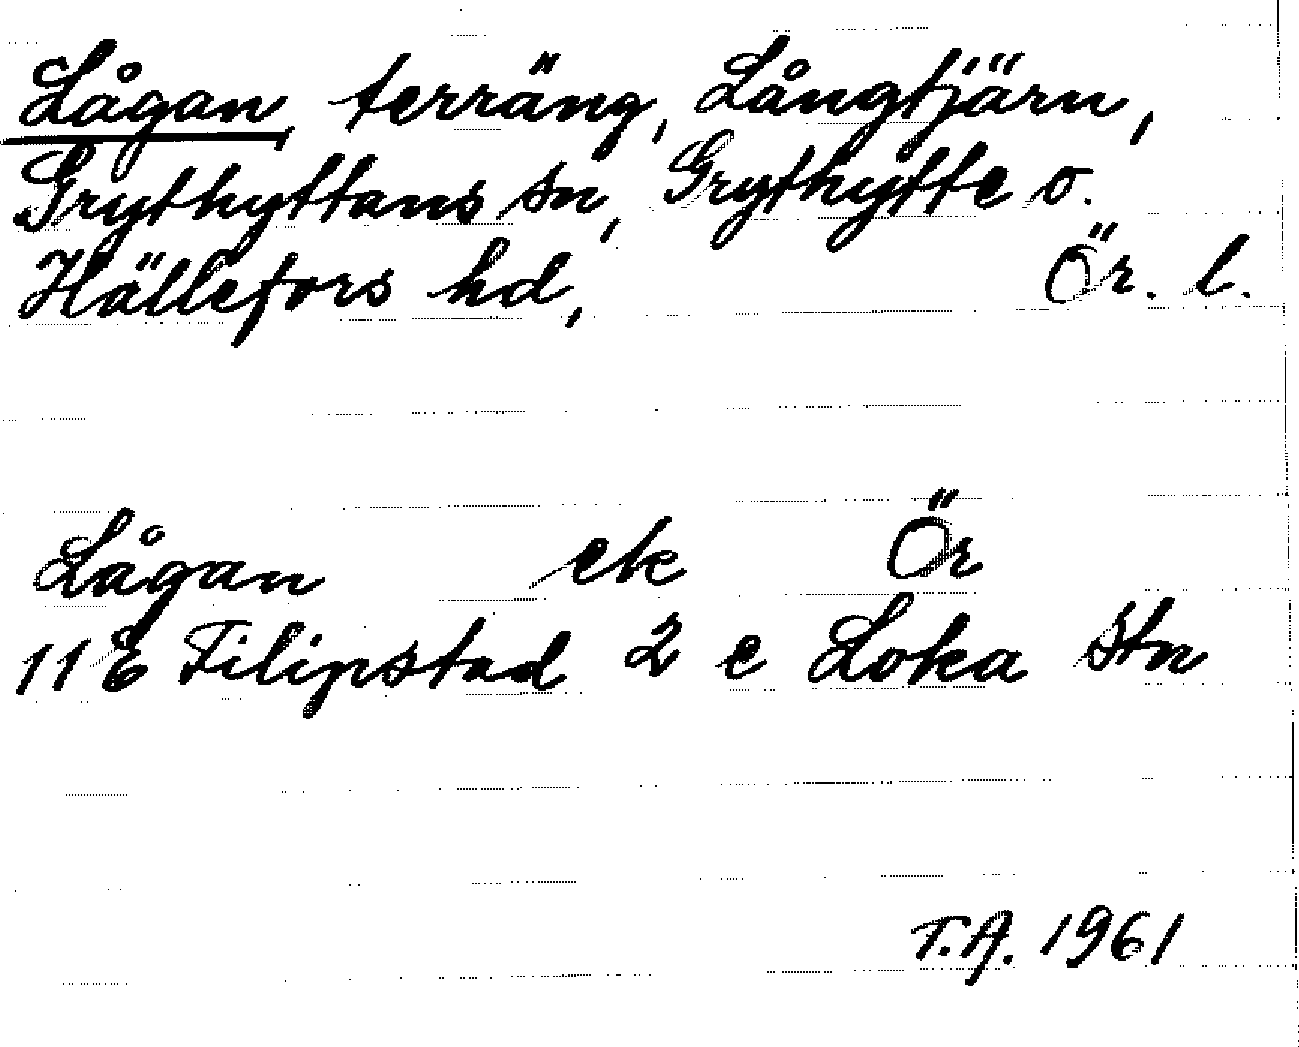 Lågan, terräng, Långtjärn,
Grythyttans sn, Grythytte o.
Hällefors hd, Ör. l.
Lågan ek Ör
11 E Filipstad 2 e Loka Stn
T.A. 1961